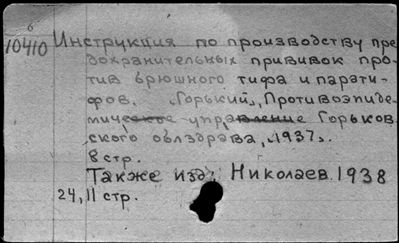 6
10410 Инструкция по производству пре
дохранительных прививок про-
тив брюшного тифа и парати-
фов. Горький, Противоэпиде-
мическое управление Горьков
ского облздрава, 1937.
8 стр.
Также изд. Николаев 1938
24, 11 стр.